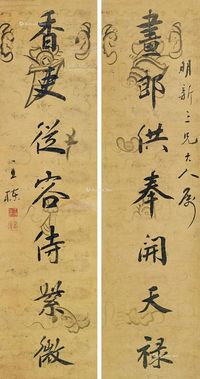 明新三兄大人属
畫郎供奉開天禄
香吏從容侍紫微